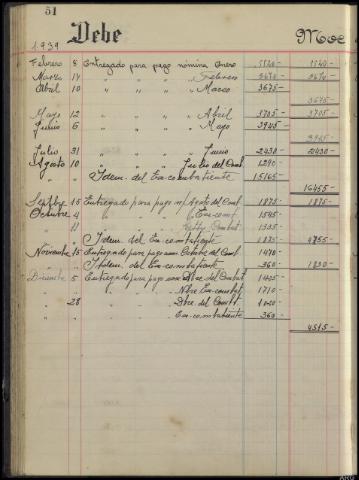 51
1939 Debe
Febrero 8 Entregado para pago nómina Enero 5520- 5520-
Marzo 14 " " " " Febrero 3670- 3670-
Abril 10 " " " " Marzo 3675-
3675-
Mayo 12 " " " " Abril 3705- 3705-
Junio 6 " " " " Mayo 3945-
3945-
Julio 31 " " " " Junio 2430- 2430-
Agosto 10 " " " Julio del Comb. 1290-
" " Idem. del Ex-combatiente 15165-
16455-
Sepbre 15 Entregado para pago n/ Agosto del Comb. 1875- 1875-
Octubre 4 " " " Ex-com. 1545-
" 11 " " Combat. 1335-
" " Idem del Ex-combatiente 1875- 4755-
Noviembre 15 Entregado para pago Octubre del Comb. 1470-
" " Idem. del Ex-combatiente 360- 1830-
Diciembre 5 Entregado para pago Combat 1425-
" " " " Nbre Ex-combat 1710-
" 28 " " Dbre del Combat
" " " Ex-combatiente 360-
4515-